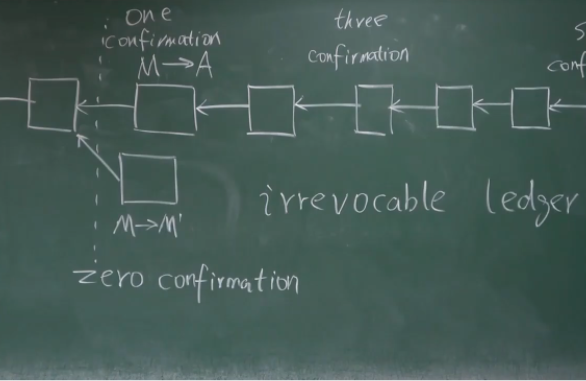 one
confirmation
M→A
three
confirmation
s
conf
M→M'
irrevocable ledger
zero confirmation